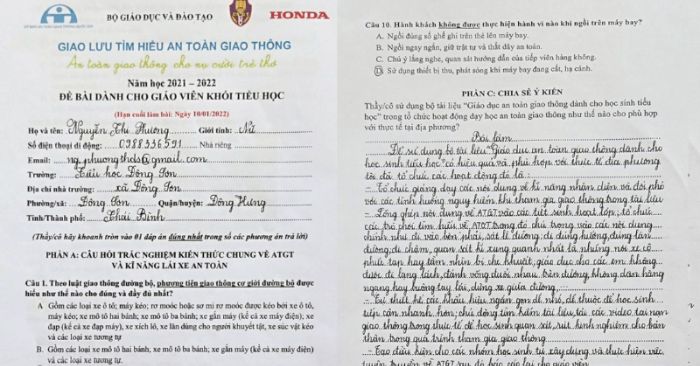 BỘ GIÁO DỤC VÀ ĐÀO TẠO
HONDA
GIAO LƯU TÌM HIỂU AN TOÀN GIAO THÔNG
An toàn giao thông cho nụ cười trẻ thơ
Năm học 2021 – 2022
ĐỀ BÀI DÀNH CHO GIÁO VIÊN KHỐI TIỂU HỌC
(Hạn cuối làm bài: Ngày 10/01/2022)
Họ và tên: Nguyễn Thị Phương Giới tính: Nữ
Số điện thoại di động: 0988336591 Nhà riêng
Email: ng.phuongthds@gmail.com
Trường: Tiểu học Đông Sơn
Địa chỉ nhà trường: xã Đông Sơn
Phường/xã: Đông Sơn Quận/huyện: Đông Hưng
Tỉnh/Thành phố: Thái Bình
(Thầy/cô hãy khoanh tròn vào 01 đáp án đúng nhất trong số các phương án trả lời)
PHẦN A: CÂU HỎI TRẮC NGHIỆM KIẾN THỨC CHUNG VỀ ATGT
VÀ KĨ NĂNG LÁI XE AN TOÀN
Câu 1. Theo luật giao thông đường bộ, phương tiện giao thông cơ giới đường bộ được
hiểu như thế nào cho đúng và đầy đủ nhất?
A Gồm các loại xe ô tô; máy kéo; rơ moóc hoặc sơ mi rơ moóc được kéo bởi xe ô tô,
máy kéo; xe mô tô hai bánh; xe mô tô ba bánh; xe gắn máy (kể cả xe máy điện); xe
đạp (kể cả xe đạp máy), xe xích lô, xe lăn dùng cho người khuyết tật, xe súc vật kéo
và các loại xe tương tự
B. Gồm các loại xe mô tô hai bánh; xe mô tô ba bánh; xe gắn máy (kể cả xe máy điện)
và các loại xe tương tự
Câu 10. Hành khách không được thực hiện hành vi nào khi ngồi trên máy bay?
A. Ngồi đúng số ghế ghi trên thẻ lên máy bay.
B. Ngồi ngay ngắn, giữ trật tự và thắt dây an toàn.
C. Chú ý lắng nghe, quan sát hướng dẫn của tiếp viên hàng không.
D. Sử dụng thiết bị thu, phát sóng khi máy bay đang cất, hạ cánh.
PHẦN C: CHIA SẺ Ý KIẾN
Thầy/cô sử dụng bộ tài liệu "Giáo dục an toàn giao thông dành cho học sinh tiểu
học" trong tổ chức hoạt động dạy học an toàn giao thông như thế nào cho phù hợp
với thực tế tại địa phương?
Bài làm
Để sử dụng bộ tài liệu "Giáo dục an toàn giao thông dành cho
học sinh tiểu học" có hiệu quả và phù hợp với thực tế địa phương
tôi đã tổ chức các hoạt động đó là:
- Tổ chức giảng dạy các nội dung về kĩ năng nhận diện và đối phó
với các tình huống nguy hiểm khi tham gia giao thông trong tài liệu
- Lồng ghép nội dung về ATGT vào các tiết sinh hoạt lớp, tổ chức
các trò chơi tìm hiểu về ATGT trong đó chú trọng vào các nội dung
chính như đi vào bên phải, sát lề đường; đi đúng hướng đường, làn
đường; đi chậm, quan sát kĩ xung quanh, nhất là những nơi xe cộ
phức tạp hay tầm nhìn bị che khuất, giáo dục cho các em không
được đi lạng lách, đánh võng, đuổi nhau, trên đường, không dàn hàng
ngang hay buông tay lái, dừng xe giữa đường,...
- thiết kế các khẩu hiệu ngắn gọn dễ nhớ, dễ thuộc để học sinh
tiếp cận nhanh hơn; chủ động tìm kiếm tài liệu, tải các video tai nạn
giao thông trong thực tế để học sinh quan sát, rút kinh nghiệm cho bản
thân trong quá trình tham gia giao thông.
- Tạo điều kiện cho các nhóm học sinh tự xây dựng và thực hiện việc
tuyên truyền về ATGT sau đó báo cáo lại cho giáo viên